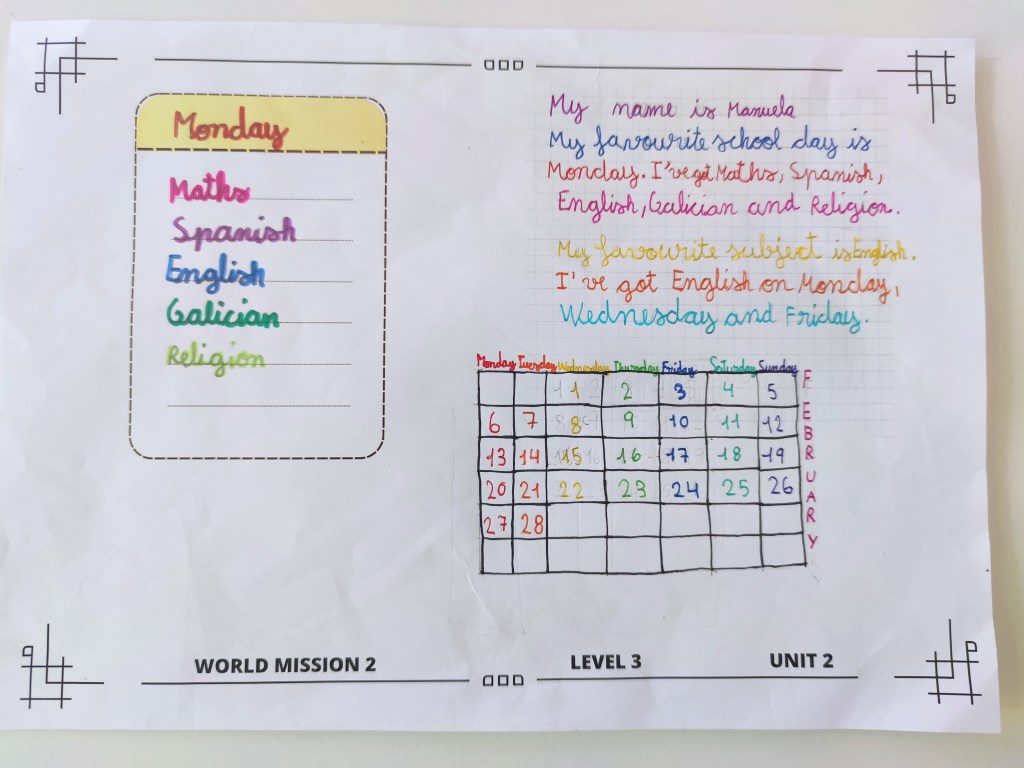 Monday
Maths
Spanish
English
Galician
Religion
My name is Manuela
My favourite school day is
Monday. I've got Maths, Spanish,
English, Galician and Religion.
My favourite subject is English.
I've got English on Monday,
Wednesday and Friday.
Monday Tuesday Wednesday Thursday Friday Saturday Sunday
1 2 3 4 5
6 7 8 9 10 11 12
13 14 15 16 17 18 19
20 21 22 23 24 25 26
27 28
FEBRUARY
WORLD MISSION 2 LEVEL 3 UNIT 2